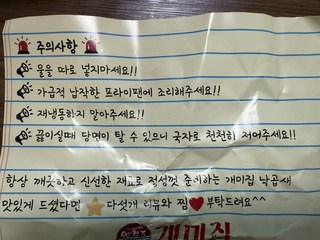 주의사항
물을 따로 넣지마세요!!
가급적 납작한 프라이팬에 조리해주세요!!
재냉동하지 말아주세요!!
끓이실때 당면이 탈 수 있으니 국자로 천천히 저어주세요!!
항상 깨끗하고 신선한 재료로 정성껏 준비하는 개미집 낙곱새
맛있게 드셨다면 ⭐ 다섯개 리뷰와 찜❤ 부탁드려요^^
개미집